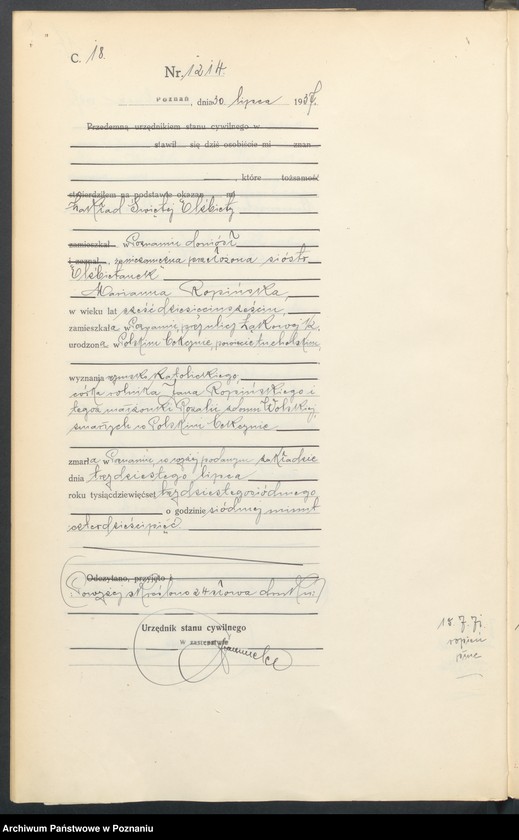 C. 18.
Nr. 1214
Poznań, dnia 30 lipca 1937.
Przedemną urzędnikiem stanu cywilnego w
stawił się dziś osobiście mi znan
, które tożsamość
stwierdziłem na podstawie okazan
Zakład Świętej Elżbiety
zamieszkał w Poznaniu doniósł
i zeznał, że niezamężna przełożona sióstr
"Elżbietanek"
Marianna Ropińska,
w wieku lat sześćdziesięciu sześciu,
zamieszkała w Poznaniu, przy ulicy Łąkowej
urodzona w Polskim Cekcynie, powiecie tucholskim,
wyznania rzymsko katolickiego,
córka rolnika Jana Ropińskiego i
tegoż małżonki Rozalii z domu Wolskiej,
zmarłych w Polskim Cekcynie
zmarła w Poznaniu, w wyżej podanym zakładzie
dnia trzydziestego lipca
roku tysiącdziewięćset trzydziestegosiódmego
o godzinie siódmej minut
czterdzieścipięć
Odczytano, przyjęto i
Powyżej skreślono 24 słowa druku.
Urzędnik stanu cywilnego
w zastępstwie
18.7.71
Archiwum Państwowe w Poznaniu